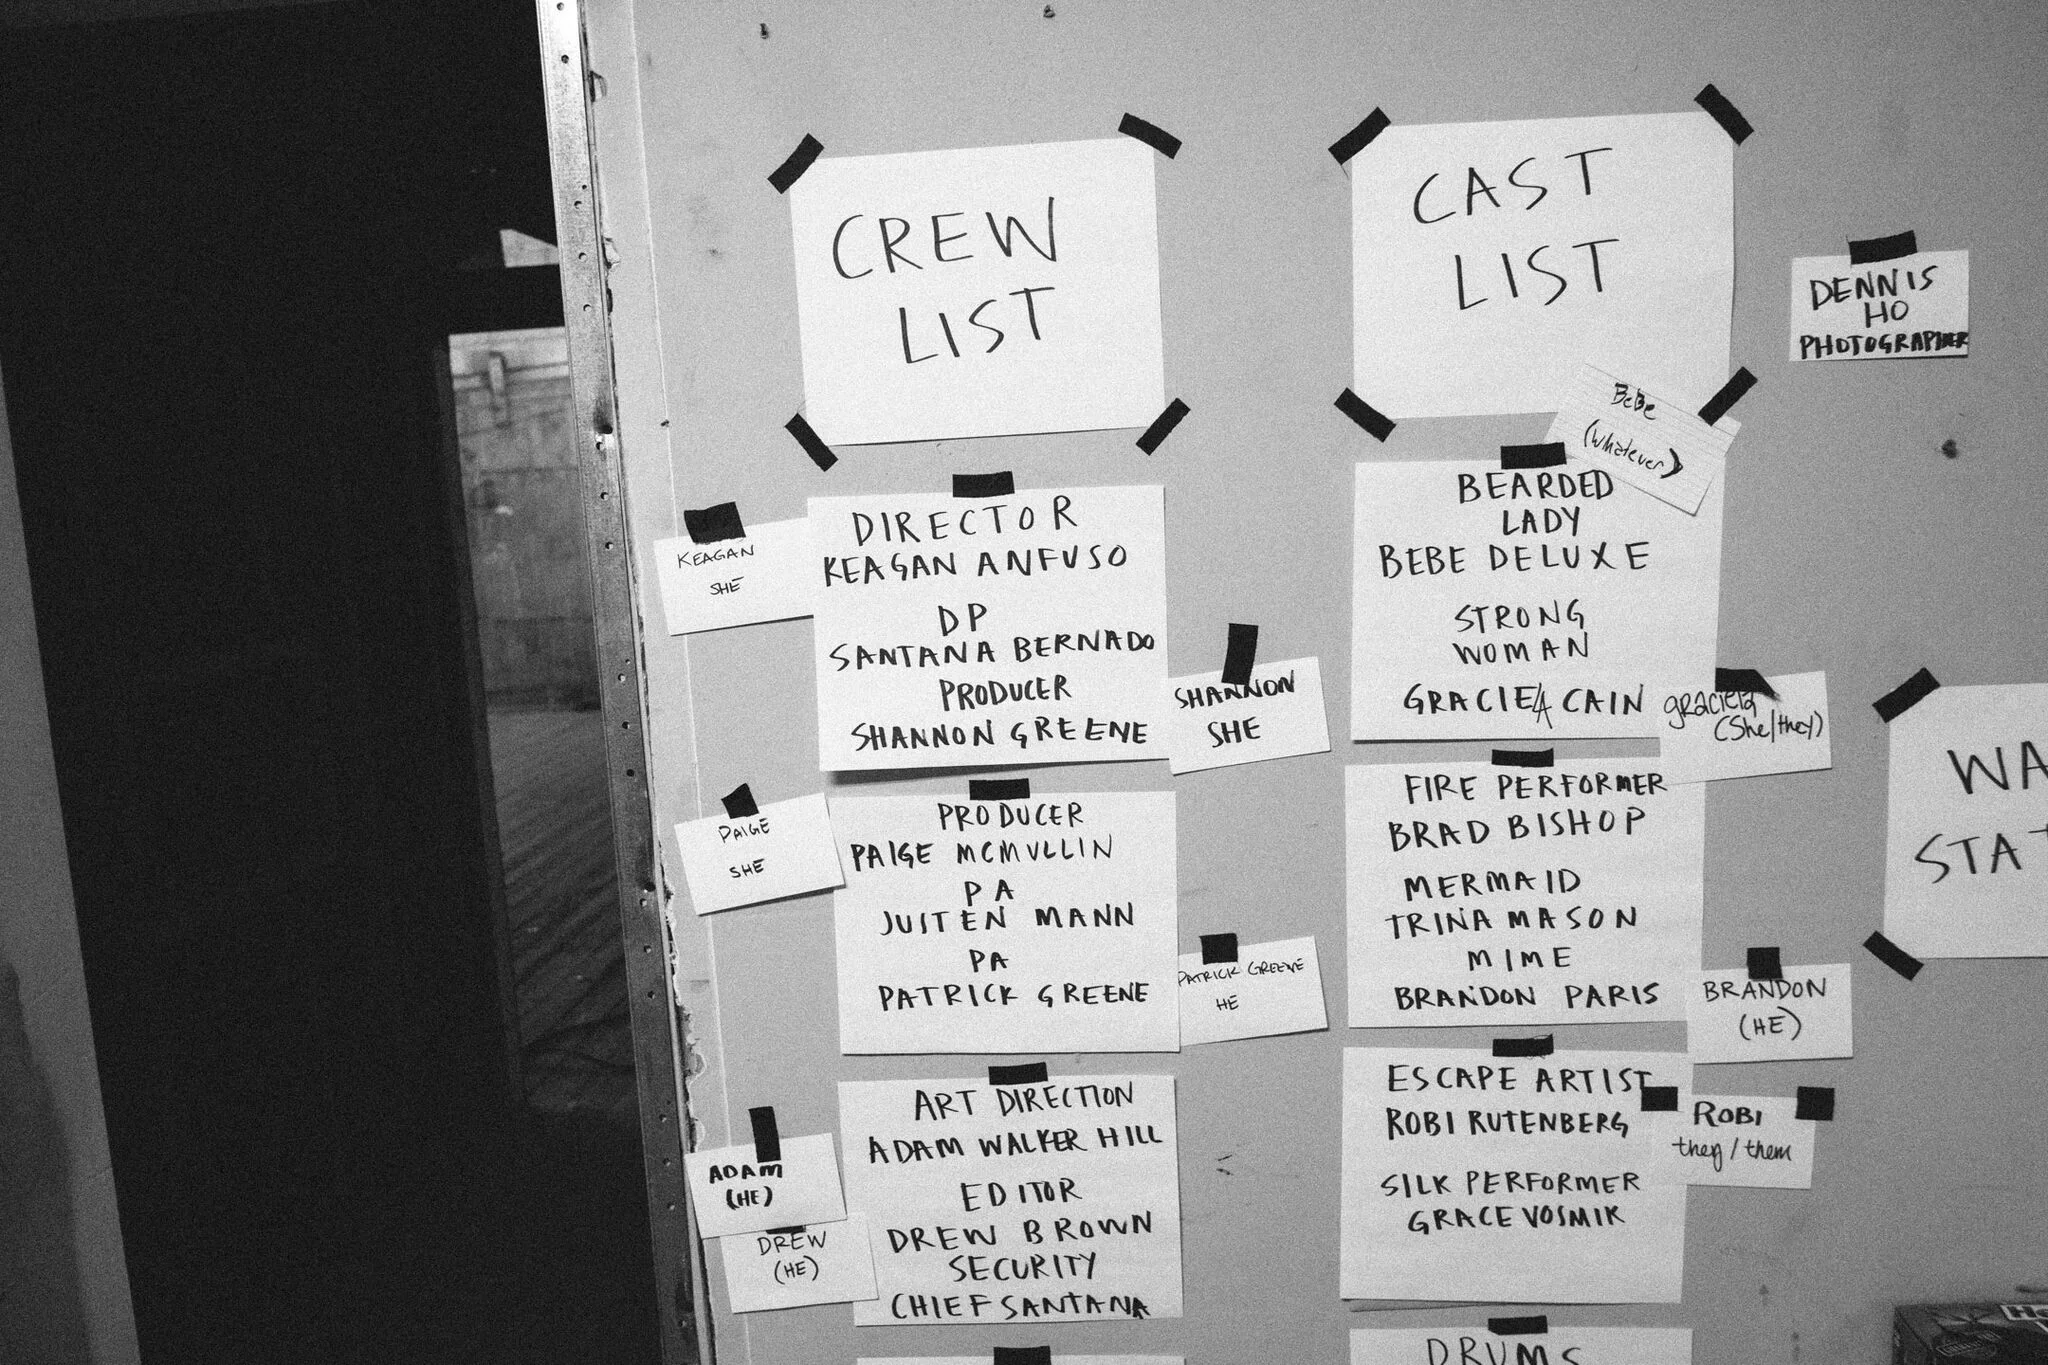 CREW
LIST
KEAGAN
SHE
DIRECTOR
KEAGAN ANFUSO
DP
SANTANA BERNADO
PRODUCER
SHANNON GREENE
SHANNON
SHE
PAIGE
SHE
PRODUCER
PAIGE MCMULLIN
PA
JUSTEN MANN
PA
PATRICK GREENE
PATRICK GREENE
HE
ART DIRECTION
ADAM WALKER HILL
EDITOR
DREW BROWN
SECURITY
CHIEF SANTANA
ADAM
(HE)
DREW
(HE)
CAST
LIST
Bebe
(whatever)
BEARDED
LADY
BEBE DELUXE
STRONG
WOMAN
GRACIELA CAIN
graciela
(She/they)
FIRE PERFORMER
BRAD BISHOP
MERMAID
TRINA MASON
MIME
BRANDON PARIS
BRANDON
(HE)
ESCAPE ARTIST
ROBI RUTENBERG
SILK PERFORMER
GRACE VOSMIK
ROBI
they/them
DRUMS
DENNIS
HO
PHOTOGRAPHER
WA
STAT